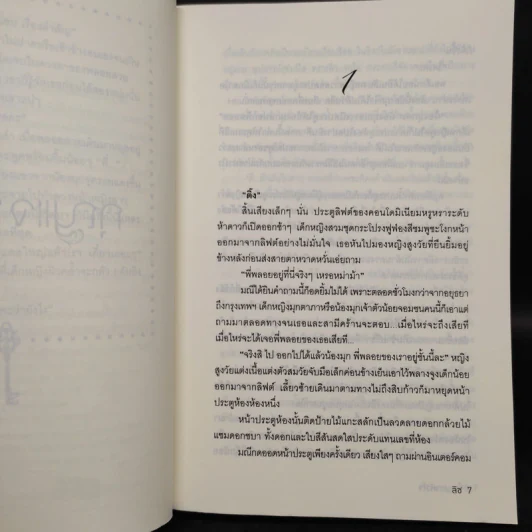 1
"ติ๊ง"
สิ้นเสียงเล็กๆ นั่น ประตูลิฟต์ของคอนโดมิเนียมหรูหราระดับ
ห้าดาวก็เปิดออกช้าๆ เด็กหญิงสวมชุดกระโปรงฟูฟ่องสีชมพูชะโงกหน้า
ออกมาจากลิฟต์อย่างไม่มั่นใจ เธอหันไปมองหญิงสูงวัยที่ยืนยิ้มอยู่
ข้างหลังก่อนส่งสายตาหวาดหวั่นเอ่ยถาม
"พี่พลอยอยู่ที่นี่จริงๆ เหรอหม่าม้า"
มณีได้ยินคำถามนี้ก็อดยิ้มไม่ได้ เพราะตลอดชั่วโมงกว่าจากอยุธยา
ถึงกรุงเทพฯ เด็กหญิงมุกดาภาหรือน้องมุก เจ้าตัวน้อยจอมซนคนนี้ก็เอาแต่
ถามมาตลอดทางจนเธอและสามีคร้านจะตอบ...เมื่อไหร่จะถึงเสียที
เมื่อไหร่จะได้เจอพี่พลอยของเธอเสียที...
"จริงสิ ไป ออกไปได้แล้วน้องมุก พี่พลอยของเราอยู่ชั้นนี้ละ" หญิง
สูงวัยแต่งเนื้อแต่งตัวสมวัยจับมือเล็กค่อนข้างเย็นเอาไว้พลางจูงเด็กน้อย
ออกมาจากลิฟต์ เลี้ยวซ้ายเดินมาตามทางไม่ถึงสิบก้าวก็มาหยุดหน้า
ประตูห้องห้องหนึ่ง
หน้าประตูห้องนั้นติดป้ายไม้แกะสลักเป็นลวดลายดอกกล้วยไม้
แซมดอกชบา ทั้งดอกและใบสีสันสดใสประดับแทนเลขที่ห้อง
มณีกดออดหน้าประตูเพียงครั้งเดียว เสียงใสๆ ถามผ่านอินเตอร์คอม
ลิซ 7